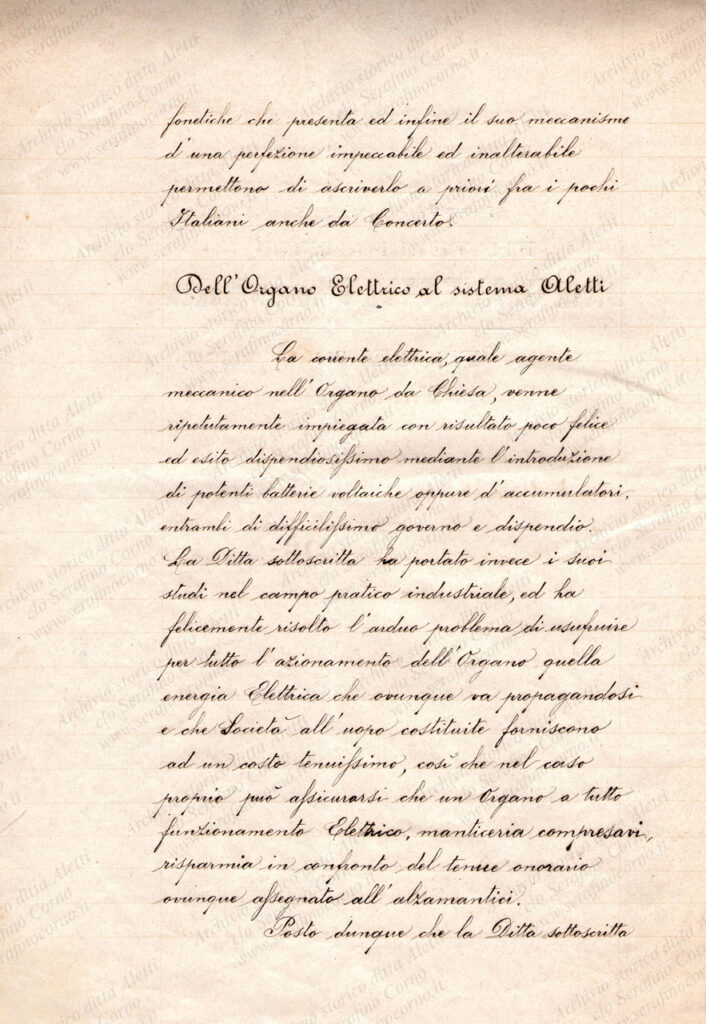 fonetiche che presenta ed infine il suo meccanismo
d'una perfezione impeccabile ed inalterabile
permettono di ascriverlo a priori fra i pochi
Italiani anche da Concerto.
Dell'Organo Elettrico al sistema Aletti
La corrente elettrica, quale agente
meccanico nell'Organo da Chiesa, venne
ripetutamente impiegata con risultato poco felice
ed esito dispendiosissimo mediante l'introduzione
di potenti batterie voltaiche oppure d'accumulatori,
entrambi di difficilissimo governo e dispendio.
La Ditta sottoscritta ha portato invece i suoi
studi nel campo pratico industriale, ed ha
felicemente risolto l'arduo problema di usufruire
per tutto l'azionamento dell'Organo quella
energia Elettrica che ovunque va propagandosi
e che Società all'uopo costituite forniscono
ad un costo tenuissimo, così che nel caso
proprio può assicurarsi che un Organo a tutto
funzionamento Elettrico, manticeria compresavi,
risparmia in confronto del tenue onorario
ovunque assegnato all'alzamantici.
Posto dunque che la Ditta sottoscritta
Archivio storico ditta Aletti
c/o Serafino Corno
www.serafinocorno.it